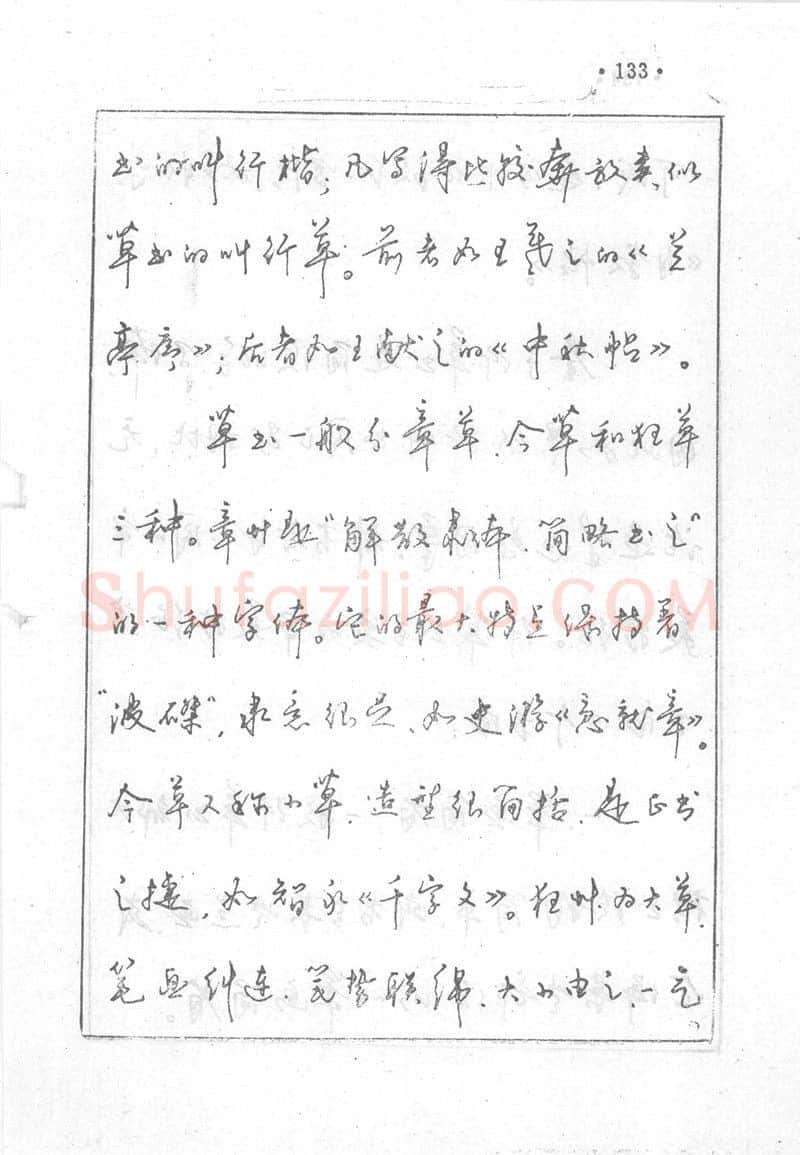 ·133·
书的叫行楷；凡写得比较奔放类似
草书的叫行草。前者如王羲之的《兰
亭序》；后者如王献之的《中秋帖》。
草书一般分章草、今草和狂草
三种。章艸是“解散隶体、简略书之”
的一种字体。它的最大特点保持着
“波磔”，隶意很足、如史游《急就章》。
今草又称小草，造型很简括，是正书
之捷，如智永《千字文》。狂艸为大草，
笔画纠连、笔势联绵、大小由之、一气
Shufaziliao.COM